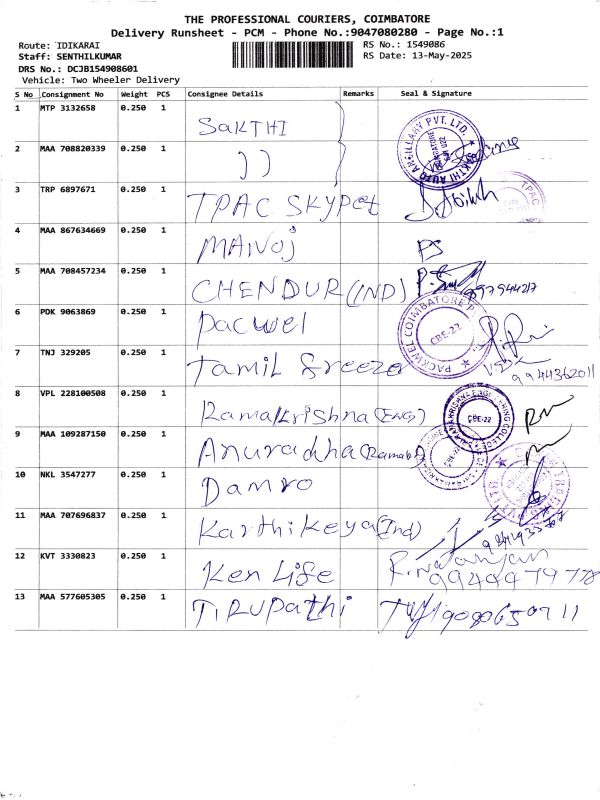 THE PROFESSIONAL COURIERS, COIMBATORE
Delivery Runsheet - PCM - Phone No.:9047080280 - Page No.:1
Route: IDIKARAI
RS No.: 1549086
Staff: SENTHILKUMAR
RS Date: 13-May-2025
DRS No.: DCJB154908601
Vehicle: Two Wheeler Delivery
S No Consignment No Weight PCS Consignee Details Remarks Seal & Signature
1 MTP 3132658 0.250 1 SaKTHI
2 MAA 708820339 0.250 1 ))
3 TRP 6897671 0.250 1 TPAC SKYPet
4 MAA 867634669 0.250 1 MANoj PS
5 MAA 708457234 0.250 1 CHENDUR (IND)
6 PDK 9063869 0.250 1 Pacwel
PACKWEL COIMBATORE P CBE-22
7 TNJ 329205 0.250 1 Tamil freeze 9944362011
8 VPL 228100508 0.250 1 Ramakrishna (ENG)
CBE-22
9 MAA 109287150 0.250 1 Anuradha
10 NKL 3547277 0.250 1 Damro
11 MAA 707696837 0.250 1 Karthikeya (Ind)
12 KVT 3330823 0.250 1 Ken Life
13 MAA 577605305 0.250 1 TIRUPathi